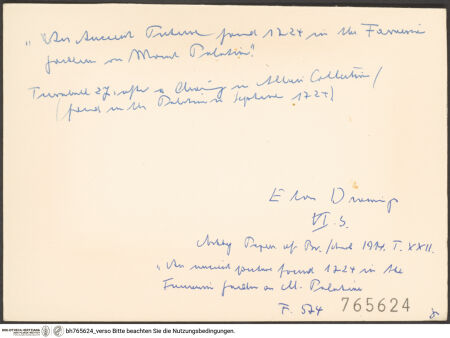 "An Ancient Picture found 1724 in the Farnesi
garden on Mount Palatin"
Turnbull 27, after a drawing in Albani Collection
(found in the Palatin in 1724)
Eton Drawings
VI. 5.
Papers of Br. 1914. T. XXII.
"An ancient picture found 1724 in the
Farnesi garden on M. Palatin
F. 574 765624
bh765624_verso Bitte beachten Sie die Nutzungsbedingungen.